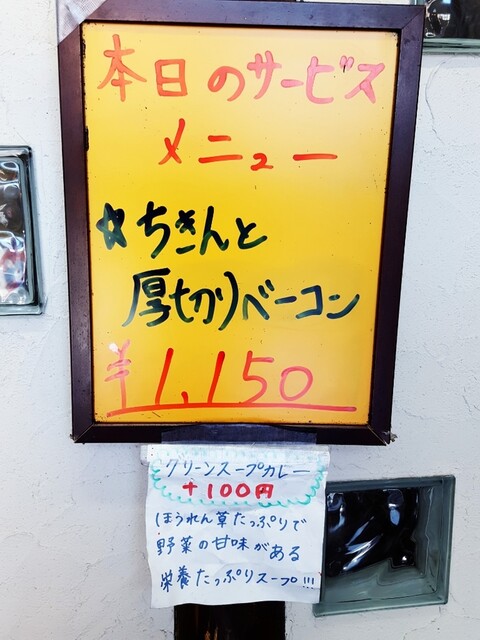 本日のサービス
メニュー
☆ちきんと
厚切りベーコン
¥1,150
グリーンスープカレー
+100円
ほうれん草たっぷりで
野菜の甘味がある
栄養たっぷりスープ!!!